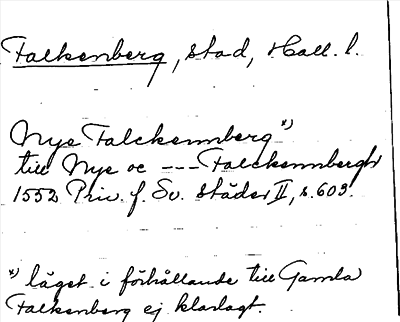 Falkenberg, stad, Hall. l.
Nye Falckennberg *)
till Nye oc --- Falckennbergh
1552 Priv. f. Sv. städer II, s. 603.
*) läget i förhållande till Gamla
Falkenberg ej klarlagt.